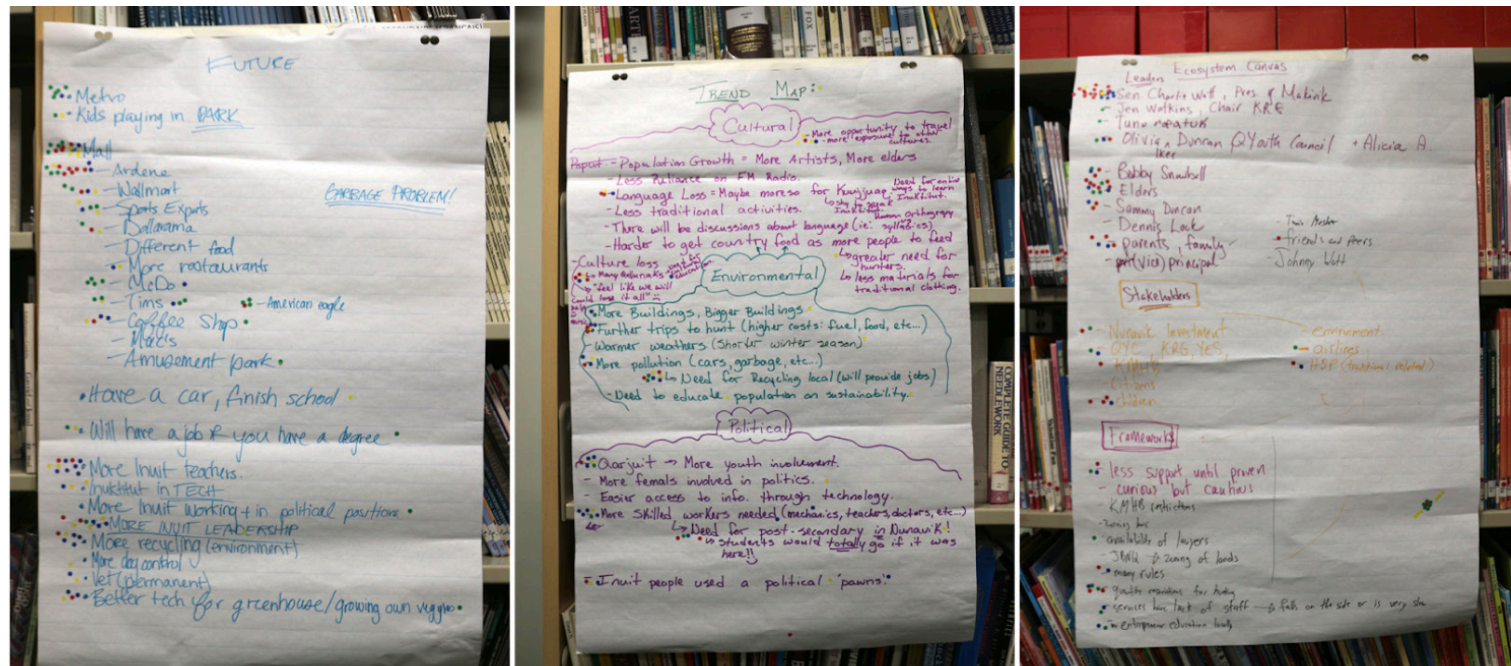 FUTURE
Metro
Kids playing in PARK
Mall
- Ardene
- Wallmart
GARBAGE PROBLEM!
- Sports Experts
- Dallarama
- Different food
- More restaurants
- McDo
- Tims
- American eagle
- Coffee shop
- Marks
- Amusement park
Have a car, finish school
Will have a job if you have a degree
More Inuit teachers.
Inuktitut in TECH
More Inuit working + in political positions
MORE INUIT LEADERSHIP
More recycling (environment)
More dog control
Vet (permanent)
Better tech for greenhouse/growing own veggies
TREND MAP:
Cultural
- More opportunity to travel
- more exposure to other cultures.
- Population Growth = More Artists, More elders
- Less Reliance on FM Radio.
- Language Loss = Maybe moreso for Kuujjuaq
Need for online ways to learn Inuktitut.
↳ shy to speak Inuktitut.
- Less traditional activities.
- There will be discussions about language (ie: syllabics)
- Harder to get country food as more people to feed
↳ greater need for hunters.
↳ less materials for traditional clothing.
- Culture loss
↳ "feel like we will could lose it all"
Environmental
- More Buildings, Bigger Buildings
- Further trips to hunt (higher costs: fuel, food, etc...)
- Warmer weathers (shorter winter season)
- More pollution (cars, garbage, etc...)
↳ Need for Recycling local (will provide jobs)
- Need to educate population on sustainability.
Political
Qarjuit → More youth involvement.
- More femals involved in politics.
- Easier access to info. through technology.
- More skilled workers needed (mechanics, teachers, doctors, etc...)
↳ Need for post-secondary in Nunavik!
↳ students would totally go if it was here!!
- Inuit people used a political "pawns"
Ecosystem Canvas
Leaders
- Sen. Charlie Watt, Pres. of Makivik
- Jen Watkins, Chair KRG
- Olivia Ikey Duncan QYouth Council + Alicia A.
- Bobby Snowball
- Elders
- Sammy Duncan
- Dennis Lock
- parents, family
- friends and peers
- (vice) principal
- Johnny Watt
Stakeholders
- Nunavik Investment
- QYC, KRG, YES,
- airlines
- KMHB
- Citizens
- children
Frameworks
- less support until proven
- curious but cautious
- KMHB restrictions
- availability of layers
- zoning of lands
- many rules